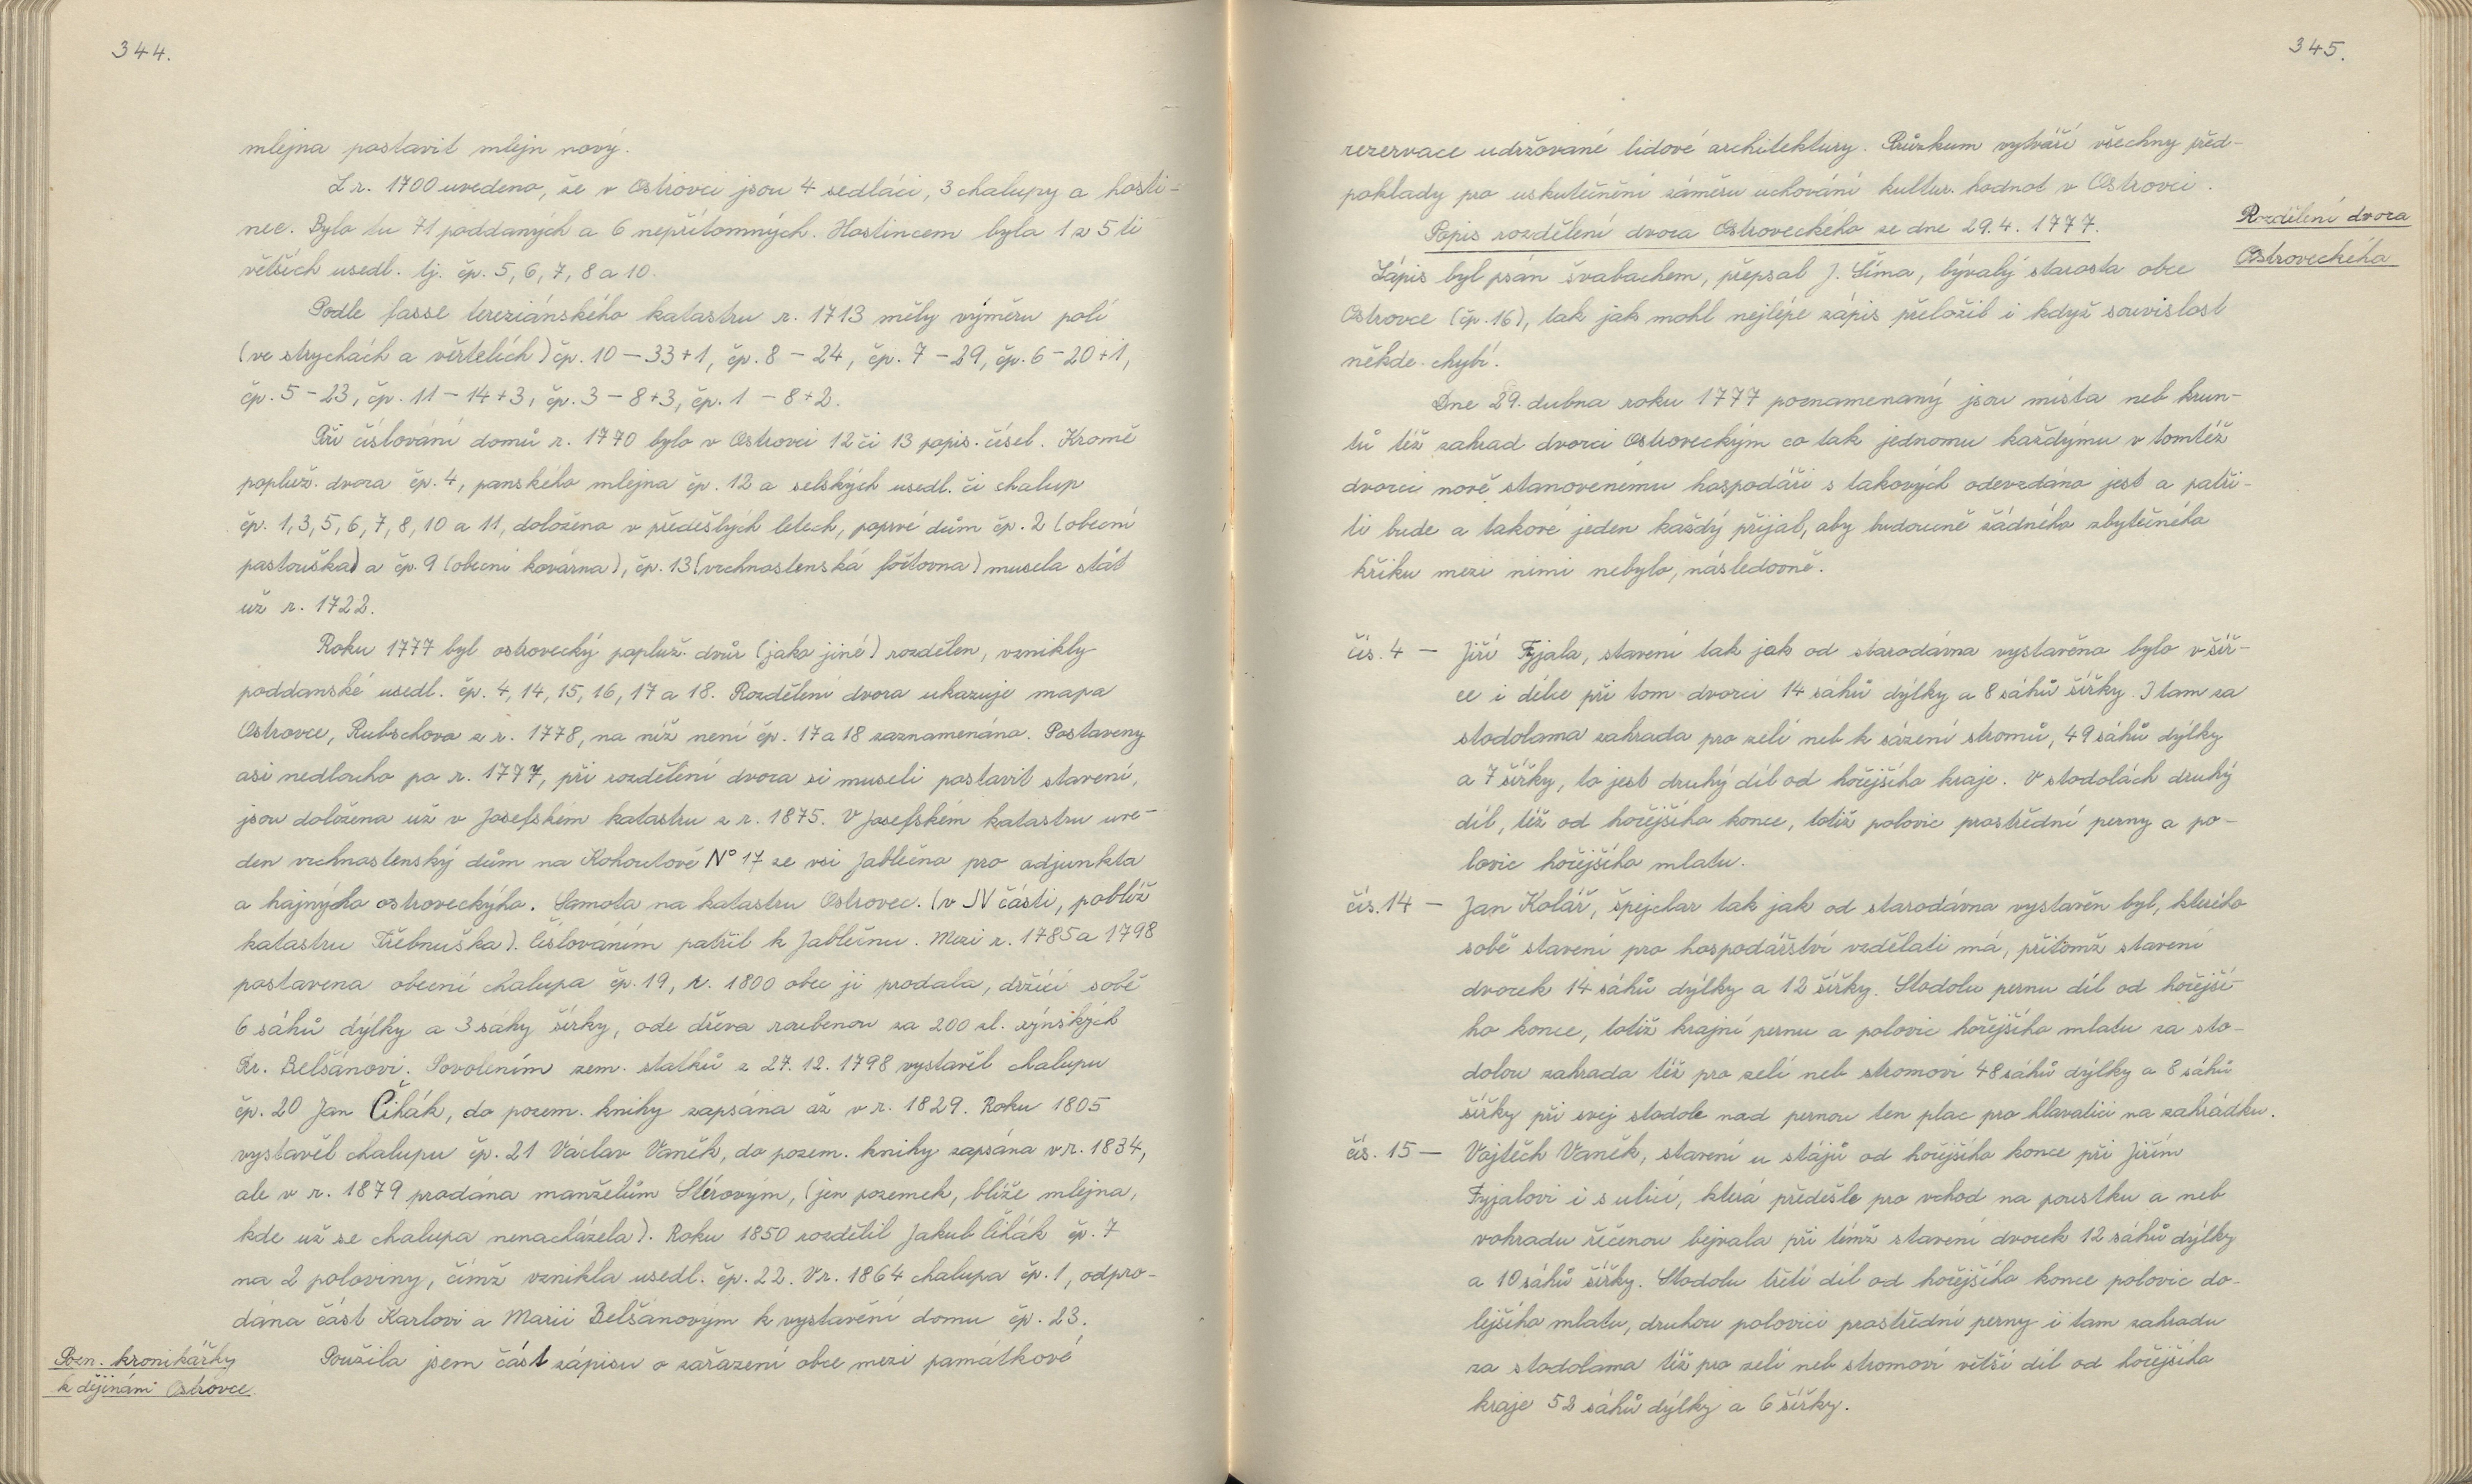 344.
mlejna postavit mlejn nový.
Z r. 1700 uvedeno, že v Ostrovci jsou 4 sedláci, 3 chalupy a hosti-
nec. Bylo tu 71 poddaných a 6 nepřítomných. Hostincem byla 1 z 5 ti
větších usedl. tj. čp. 5, 6, 7, 8 a 10.
Podle fasse tereziánského katastru r. 1713 měly výměru polí
(ve strychách a věrtelích) čp. 10 – 33+1, čp. 8 – 24, čp. 7 – 29, čp. 6 – 20+1,
čp. 5 – 23, čp. 11 – 14+3, čp. 3 – 8+3, čp. 1 – 8+2.
Při číslování domů r. 1770 bylo v Ostrovci 12 či 13 popis. čísel. Kromě
popluž. dvora čp. 4, panského mlejna čp. 12 a selských usedl. či chalup
čp. 1, 3, 5, 6, 7, 8, 10 a 11, doložena v předešlých letech, poprvé dům čp. 2 (obecní
pastouška) a čp. 9 (obecní kovárna), čp. 13 (vrchnostenská fořtovna) musela stát
už r. 1722.
Roku 1777 byl ostrovecký popluž. dvůr (jako jiné) rozdělen, vznikly
poddanské usedl. čp. 4, 14, 15, 16, 17 a 18. Rozdělení dvora ukazuje mapa
Ostrovce, Rubschova z r. 1778, na níž není čp. 17 a 18 zaznamenána. Postaveny
asi nedlouho po r. 1777, při rozdělení dvora si museli postavit stavení,
jsou doložena už v Josefském katastru z r. 1875. V Josefském katastru uve-
den vrchnostenský dům na Kohoutově N° 17 ze vsi Jablečno pro adjunkta
a hajnýho ostroveckýho. Samota na katastru Ostrovec. (v JV části, poblíž
katastru Třebnuška). Číslováním patřil k Jablečnu. Mezi r. 1785 a 1798
postavena obecní chalupa čp. 19, r. 1800 obec ji prodala, držící sobě
6 sáhů dýlky a 3 sáhy šířky, ode dřeva roubenou za 200 zl. rýnských
Fr. Belšánovi. Povolením zem. statků z 27. 12. 1798 vystavěl chalupu
čp. 20 Jan Čihák, do pozem. knihy zapsána až v r. 1829. Roku 1805
vystavěl chalupu čp. 21 Václav Vaněk, do pozem. knihy zapsána v r. 1834,
ale v r. 1879 prodána manželům Stérovým, (jen pozemek, blíže mlejna,
kde už se chalupa nenacházela). Roku 1850 rozdělil Jakub Čihák čp. 7
na 2 poloviny, čímž vznikla usedl. čp. 22. V r. 1864 chalupa čp. 1, odpro-
dána část Karlovi a Marii Belšánovým k vystavění domu čp. 23.
Pozn. kronikářky
k dějinám Ostrovce
Použila jsem část zápisu o zařazení obce mezi památkové
345.
rezervace udržované lidové architektury. Průzkum vytváří všechny před-
poklady pro uskutečnění záměru uchování kultur. hodnot v Ostrovci.
Rozdělení dvora
Ostroveckého
Popis rozdělení dvora Ostroveckého ze dne 29. 4. 1777.
Zápis byl psán švabachem, přepsal J. Šíma, bývalý starosta obce
Ostrovce (čp. 16), tak jak mohl nejlépe zápis přeložil i když souvislost
někde chybí.
Dne 29. dubna roku 1777 poznamenaný jsou místa neb krun-
tů též zahrad dvorci Ostroveckým co tak jednomu každýmu v tomtéž
dvorci nově stanovenému hospodáři s takových odevzdáno jest a patři-
ti bude a takové jeden každý přijal, aby budoucně žádného zbytečného
křiku mezi nimi nebylo, následovně.
čís. 4 – Jiří Fyjala, stavení tak jak od starodávna vystavěno bylo v šíř-
ce i délce při tom dvorci 14 sáhů dýlky a 8 sáhů šířky. I tam za
stodolama zahrada pro zelí neb k sázení stromů, 49 sáhů dýlky
a 7 šířky, to jest druhý díl od hořejšího kraje. V stodolách druhý
díl, též od hořejšího konce, totiž polovic prostřední perny a po-
lovic hořejšího mlatu.
čís. 14 – Jan Kolář, špejchar tak jak od starodávna vystavěn byl, kterého
sobě stavení pro hospodářství vzdělati má, přitomž stavení
dvorek 14 sáhů dýlky a 12 šířky. Stodolu pernu díl od hořejší-
ho konce, totiž krajní pernu a polovic hořejšího mlatu za sto-
dolou zahrada též pro zelí neb stromoví 48 sáhů dýlky a 8 sáhů
šířky při svej stodole nad pernou ten plac pro hlavatici na zahrádku.
čís. 15 – Vojtěch Vaněk, stavení u stájů od hořejšího konce při Jiřím
Fyjalovi i s ulicí, která předešle pro vchod na poustku a neb
vohradu řečenou bejvala při témž stavení dvorek 12 sáhů dýlky
a 10 sáhů šířky. Stodolu třetí díl od hořejšího konce polovic do-
lejšího mlatu, druhou polovici prostřední perny i tam zahradu
za stodolama též pro zelí neb stromoví větší díl od hořejšího
kraje 52 sáhů dýlky a 6 šířky.